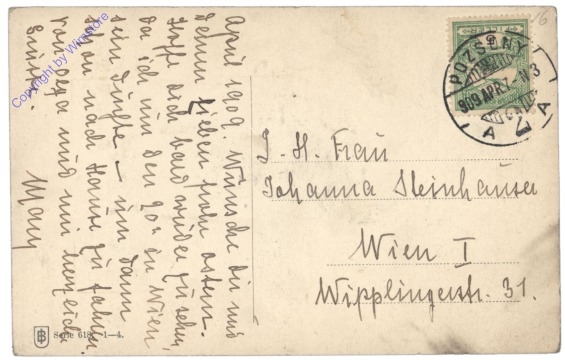 April 1909. Wünsche dir und
Deinen Lieben frohe Ostern.
Hoffe dich bald wieder zu sehen,
da ich um den 20ten in Wien
sein dürfte – um dann
nach Hause zu fahren
und
Gruß
Mary
I. H. Frau
Johanna Steinhauser
Wien I
Wipplingerstr. 31.
POZSONY
909 APR 7
Serie 618. 1–4.
B
Copyright by Winstore
16